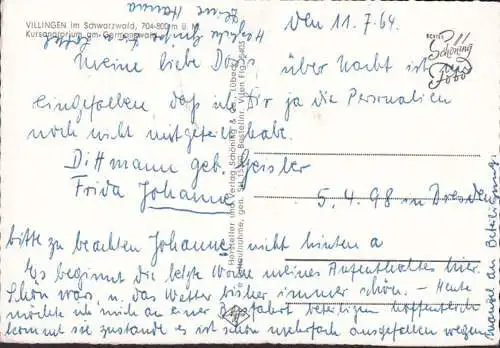 VILLINGEN im Schwarzwald, 704-800 m ü. M.
Kursanatorium am Germanswald
den 11.7.64.
ECHTES
Schöning
Foto
Meine liebe Doris, über Nacht ist mir
eingefallen, daß ich Dir ja die Personalien
noch nicht mitgeteilt habe.
Dittmann geb. Geissler
Frida Johanne
5.4.98 in Dresden
bitte zu beachten Johanne nicht hinten a
Es beginnt die letzte Woche meines Aufenthaltes hier.
Schön war's u. das Wetter bisher immer schön. – Heute
möchte ich mich an einer Busfahrt beteiligen hoffentlich
kommt sie zustande es ist schon mehrfach ausgefallen wegen
Mangel an Beteiligung.
Herzliche Grüße
Deine Hanna
Hersteller und Verlag Schöning & Co., Lübeck